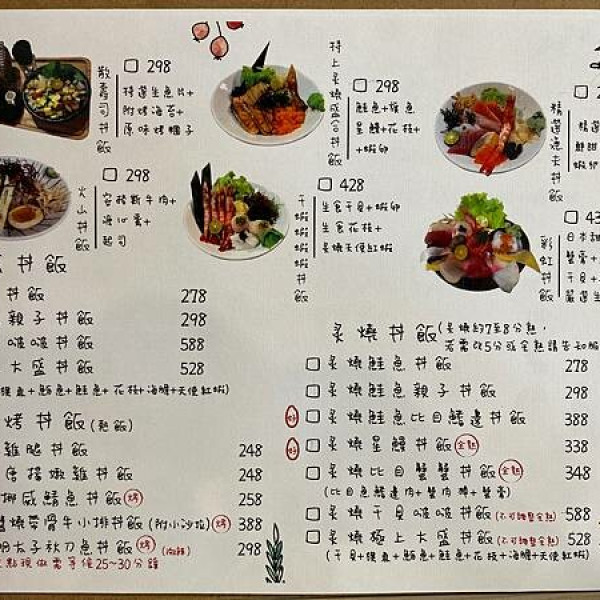 散壽司丼飯
298
特選生魚片+
附烤海苔+
原味烤糰子
特上炙燒盛合丼飯
298
鮭魚+旗魚
星鰻+花枝+
+蝦卵
精選漁夫丼飯
火山丼飯
298
安格斯牛肉+
溏心蛋+
起司
干貝蝦蝦丼飯
428
生食干貝+蝦卵
生食花枝+
炙燒天使紅蝦
彩虹丼飯
丼飯
丼飯 278
親子丼飯 298
啵啵丼飯 588
大盛丼飯 528
+鮪魚+鮭魚+花枝+海膽+天使紅蝦)
烤丼飯(熟飯)
雞腿丼飯 248
唐揚嫩雞丼飯 248
挪威鯖魚丼飯(烤) 258
燒帶骨牛小排丼飯(附小沙拉)(烤) 388
明太子秋刀魚丼飯(烤)(微辣) 298
點現做需等候25~30分鐘
炙燒丼飯(炙燒約7至8分熟,
若需比5分或全熟請告知
炙燒鮭魚丼飯 278
炙燒鮭魚親子丼飯 298
炙燒鮭魚比目鰭邊丼飯 388
炙燒星鰻丼飯(全熟) 338
炙燒比目蟹蟹丼飯(全熟) 348
(比目魚鰭邊肉+蟹肉棒+蟹膏)
炙燒干貝啵啵丼飯(不可調整全熟) 588
炙燒極上大盛丼飯(不可調整全熟) 528
+鮪魚+鮭魚+花枝+海膽+天使紅蝦)